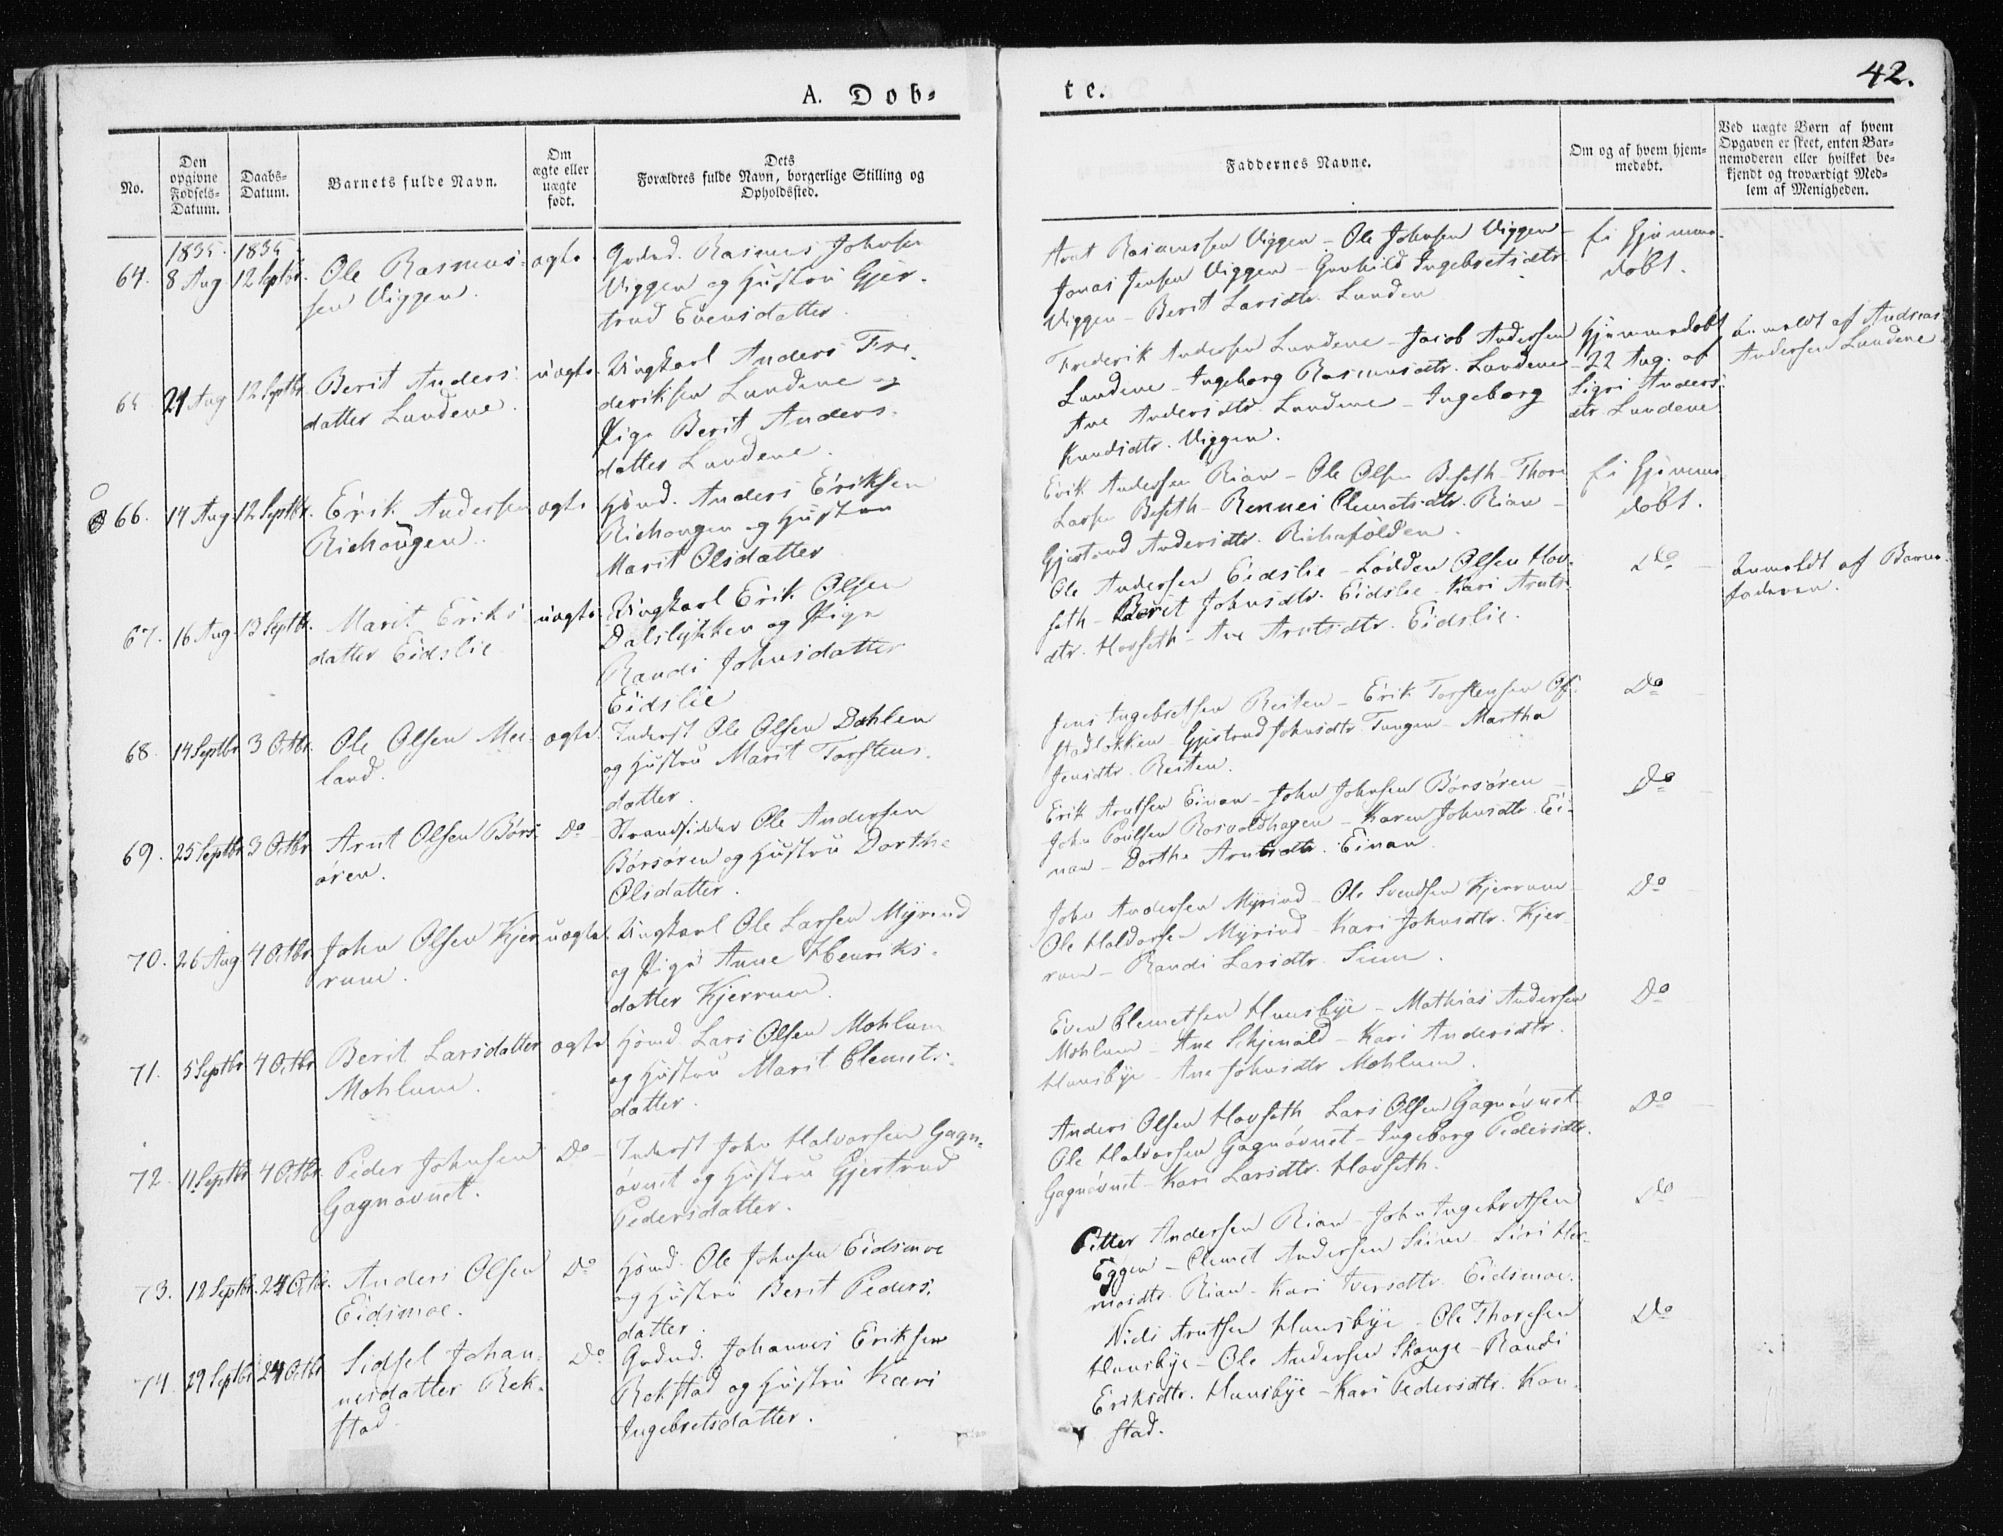 A. Døb-
te.
42.
No.
Den opgivne Fødsels-Datum.
Daabs-Datum.
Barnets fulde Navn.
Om ægte eller uægte født.
Dets Forældres fulde Navn, borgerlige Stilling og Opholdssted.
Faddernes Navne.
Om og af hvem hjemmedøbt.
Ved uægte Børn af hvem Opgaven er skeet, enten Barnemoderen eller hvilket bekjendt og troværdigt Medlem af Menigheden.
1835. 1835.
64. 8 Aug 12 Septbr. Ole Rasmus- ægte
sen Viggen.
Grdmd. Rasmus Johnsen
Viggen og Hustru Gjer-
trud Evensdatter.
Arnt Rasmussen Viggen – Ole Johnsen Viggen –
Jonas Jensen Viggen – Gunhild Ingebretsdtr.
Viggen – Berit Larsdtr. Lunden
Ei hjemme-
døbt.
65 21 Aug 12 Septbr. Berit Anders- uægte.
datter Lundene.
Ungkarl Anders Fre-
deriksen Lundene og
Pige Berit Anders-
datter Lundene.
Frederik Andersen Lundene – Jacob Andersen
Lundene – Ingeborg Rasmusdtr. Lundene
Ane Andersdtr. Lundene – Ingeborg
Knudsdtr. Viggen.
Hjemmedøbt
22 Aug. af
Sigri Anders-
dtr. Lundene
Anmeldt af Andreas
Andersen Lundene.
66. 14 Aug. 12 Septbr. Erik Andersen ægte
Richaugen.
Hsmd. Anders Eriksen
Richaugen og Hustru
Marit Olsdatter
Erik Andersen Rian – Ole Olsen Beseth – Thore
Larsen Beseth – Rennei Clemetsdtr. Rian –
Gjertrud Andersdtr. Richafolden.
Ei hjemme
døbt.
67. 16 Aug. 13 Septbr. Marit Eriks- uægte.
datter Eidslie
Ungkarl Erik Olsen
Dalslykken og Pige
Randi Johnsdatter
Eidslie
Ole Andersen Eidslie – Lødden Olsen Hov-
seth – Beret Johnsdtr. Eidslie – Kari Arnts-
dtr. Hovseth – Ane Arntsdtr. Eidslie.
Do
Anmeldt af Barne-
faderen.
68. 14 Septbr 3 Octbr. Ole Olsen Mee- ægte.
land.
Inderst Ole Olsen Dahlen
og Hustru Marit Torstens-
datter.
Jens Ingebretsen Reiten – Erik Torstensen
– Gjertrud Johnsdtr. Tungen – Martha
Jensdtr. Reiten.
Do
69. 25 Septbr 3 Octbr. Arnt Olsen Børs- Do
øren.
Strandsidder Ole Andersen
Børsøren og Hustru Dorthe
Olsdatter.
Erik Arntsen Einan – John Johnsen Børsøren –
John Poulsen Rosvoldhagen – Karen Johnsdtr. Ei-
nan – Dorthe Arntsdtr. Einan.
Do
70. 26 Aug 4 Octbr. John Olsen Kjer- uægte.
rum.
Ungkarl Ole Larsen Myrind
og Pige Anne Henriks-
datter Kjerrum.
John Andersen Myrind – Ole Svendsen Kjerrum –
Ole Haldorsen Myrind – Kari Johnsdtr. Kjer-
rum – Randi Larsdtr. Siim.
Do
71. 5 Septbr 4 Octbr. Berit Larsdatter ægte
Mohlum.
Hsmd. Lars Olsen Mohlum
og Hustru Marit Clemets-
datter.
Even Clemetsen Huusbye – Mathias Andersen
Mohlum – Ane Schjenald – Kari Andersdtr.
Huusbye – Ane Johnsdtr Mohlum.
Do
72. 11 Septbr 4 Octbr. Peder Johnsen Do
Gagnøvnet.
Inderst John Halvorsen Gagn-
øvnet og Hustru Gjertrud
Pedersdatter.
Anders Olsen Hovseth – Lars Olsen Gagnøvnet –
Ole Haldorsen Gagnøvnet – Ingeborg Pedersdtr.
Gagnøvnet – Kari Larsdtr. Hovseth.
Do
73. 12 Septbr. 24 Octbr. Anders Olsen Do
Eidsmoe.
Hsmd. Ole Johnsen Eidsmoe
og Hustru Berit Peders-
datter.
Pitter Andersen Rian – John Ingebretsen
Eggen – Clemet Andersen Siim – Siri
Rian – Kari Iversdtr. Eidsmoe.
Do
74. 29 Septbr 24 Octbr. Sidsel Johan- Do
nesdatter Rek-
stad.
Grdmd. Johannes Eriksen
Rekstad og Hustru Kari
Ingebretsdatter.
Niels Arntsen Huusbye – Ole Thoresen
Huusbye – Ole Andersen Skauge – Randi
Eriksdtr. Huusbye – Kari Pedersdtr. Kon-
stad.
Do